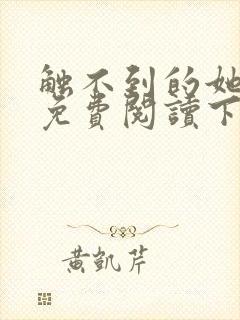 触不到的她
免費閱讀下
黃凱芹